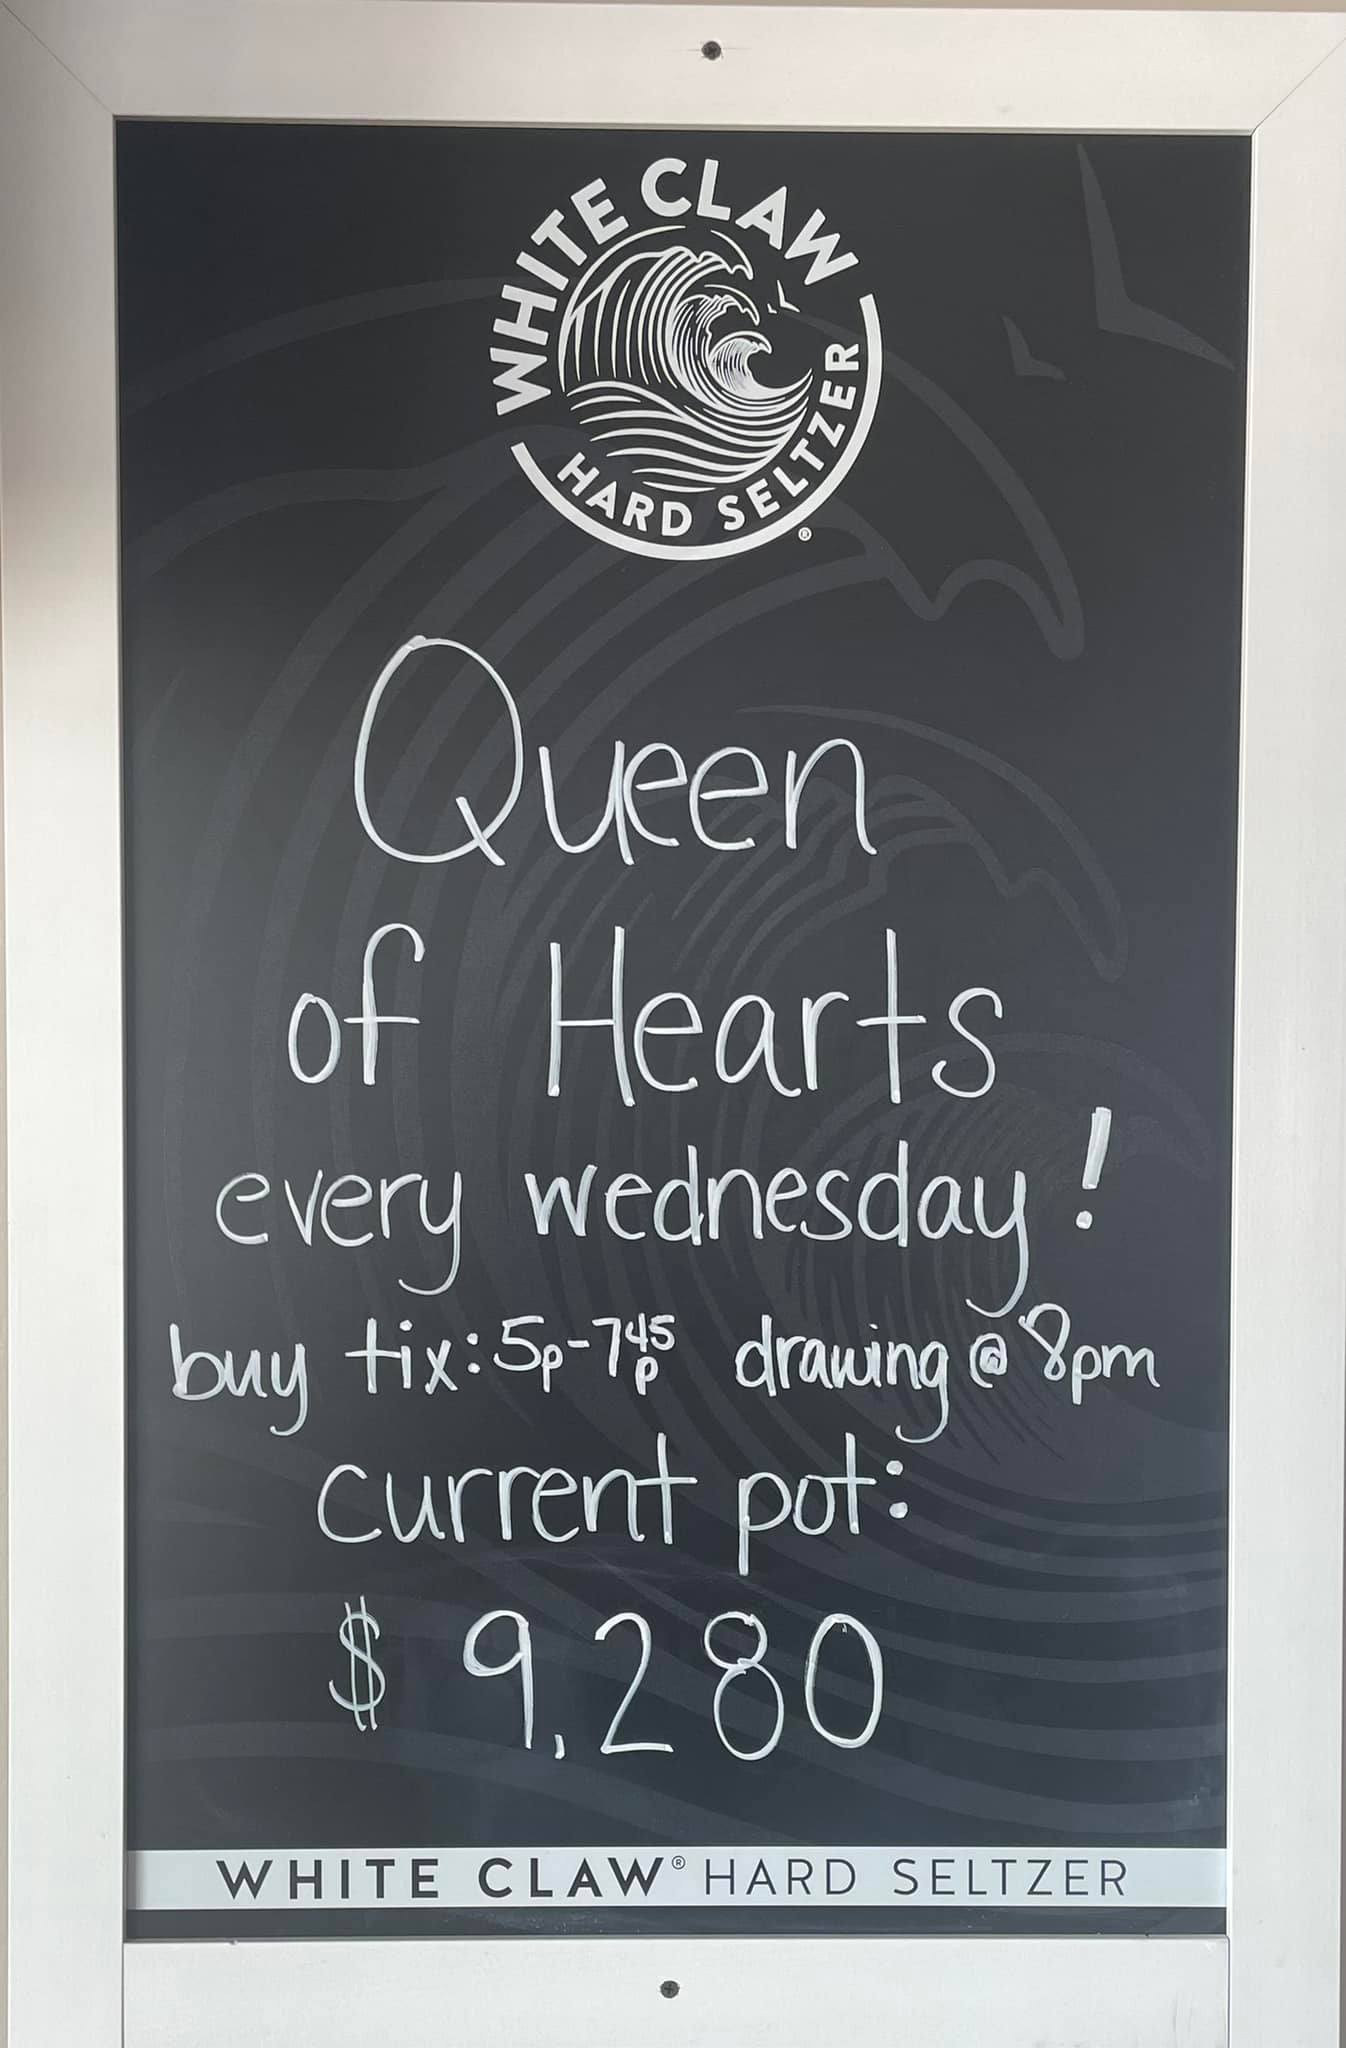 WHITE CLAW
HARD SELTZER®
Queen
of Hearts
every wednesday!
buy tix: 5p-745p drawing @ 8pm
current pot:
$ 9,280
WHITE CLAW® HARD SELTZER